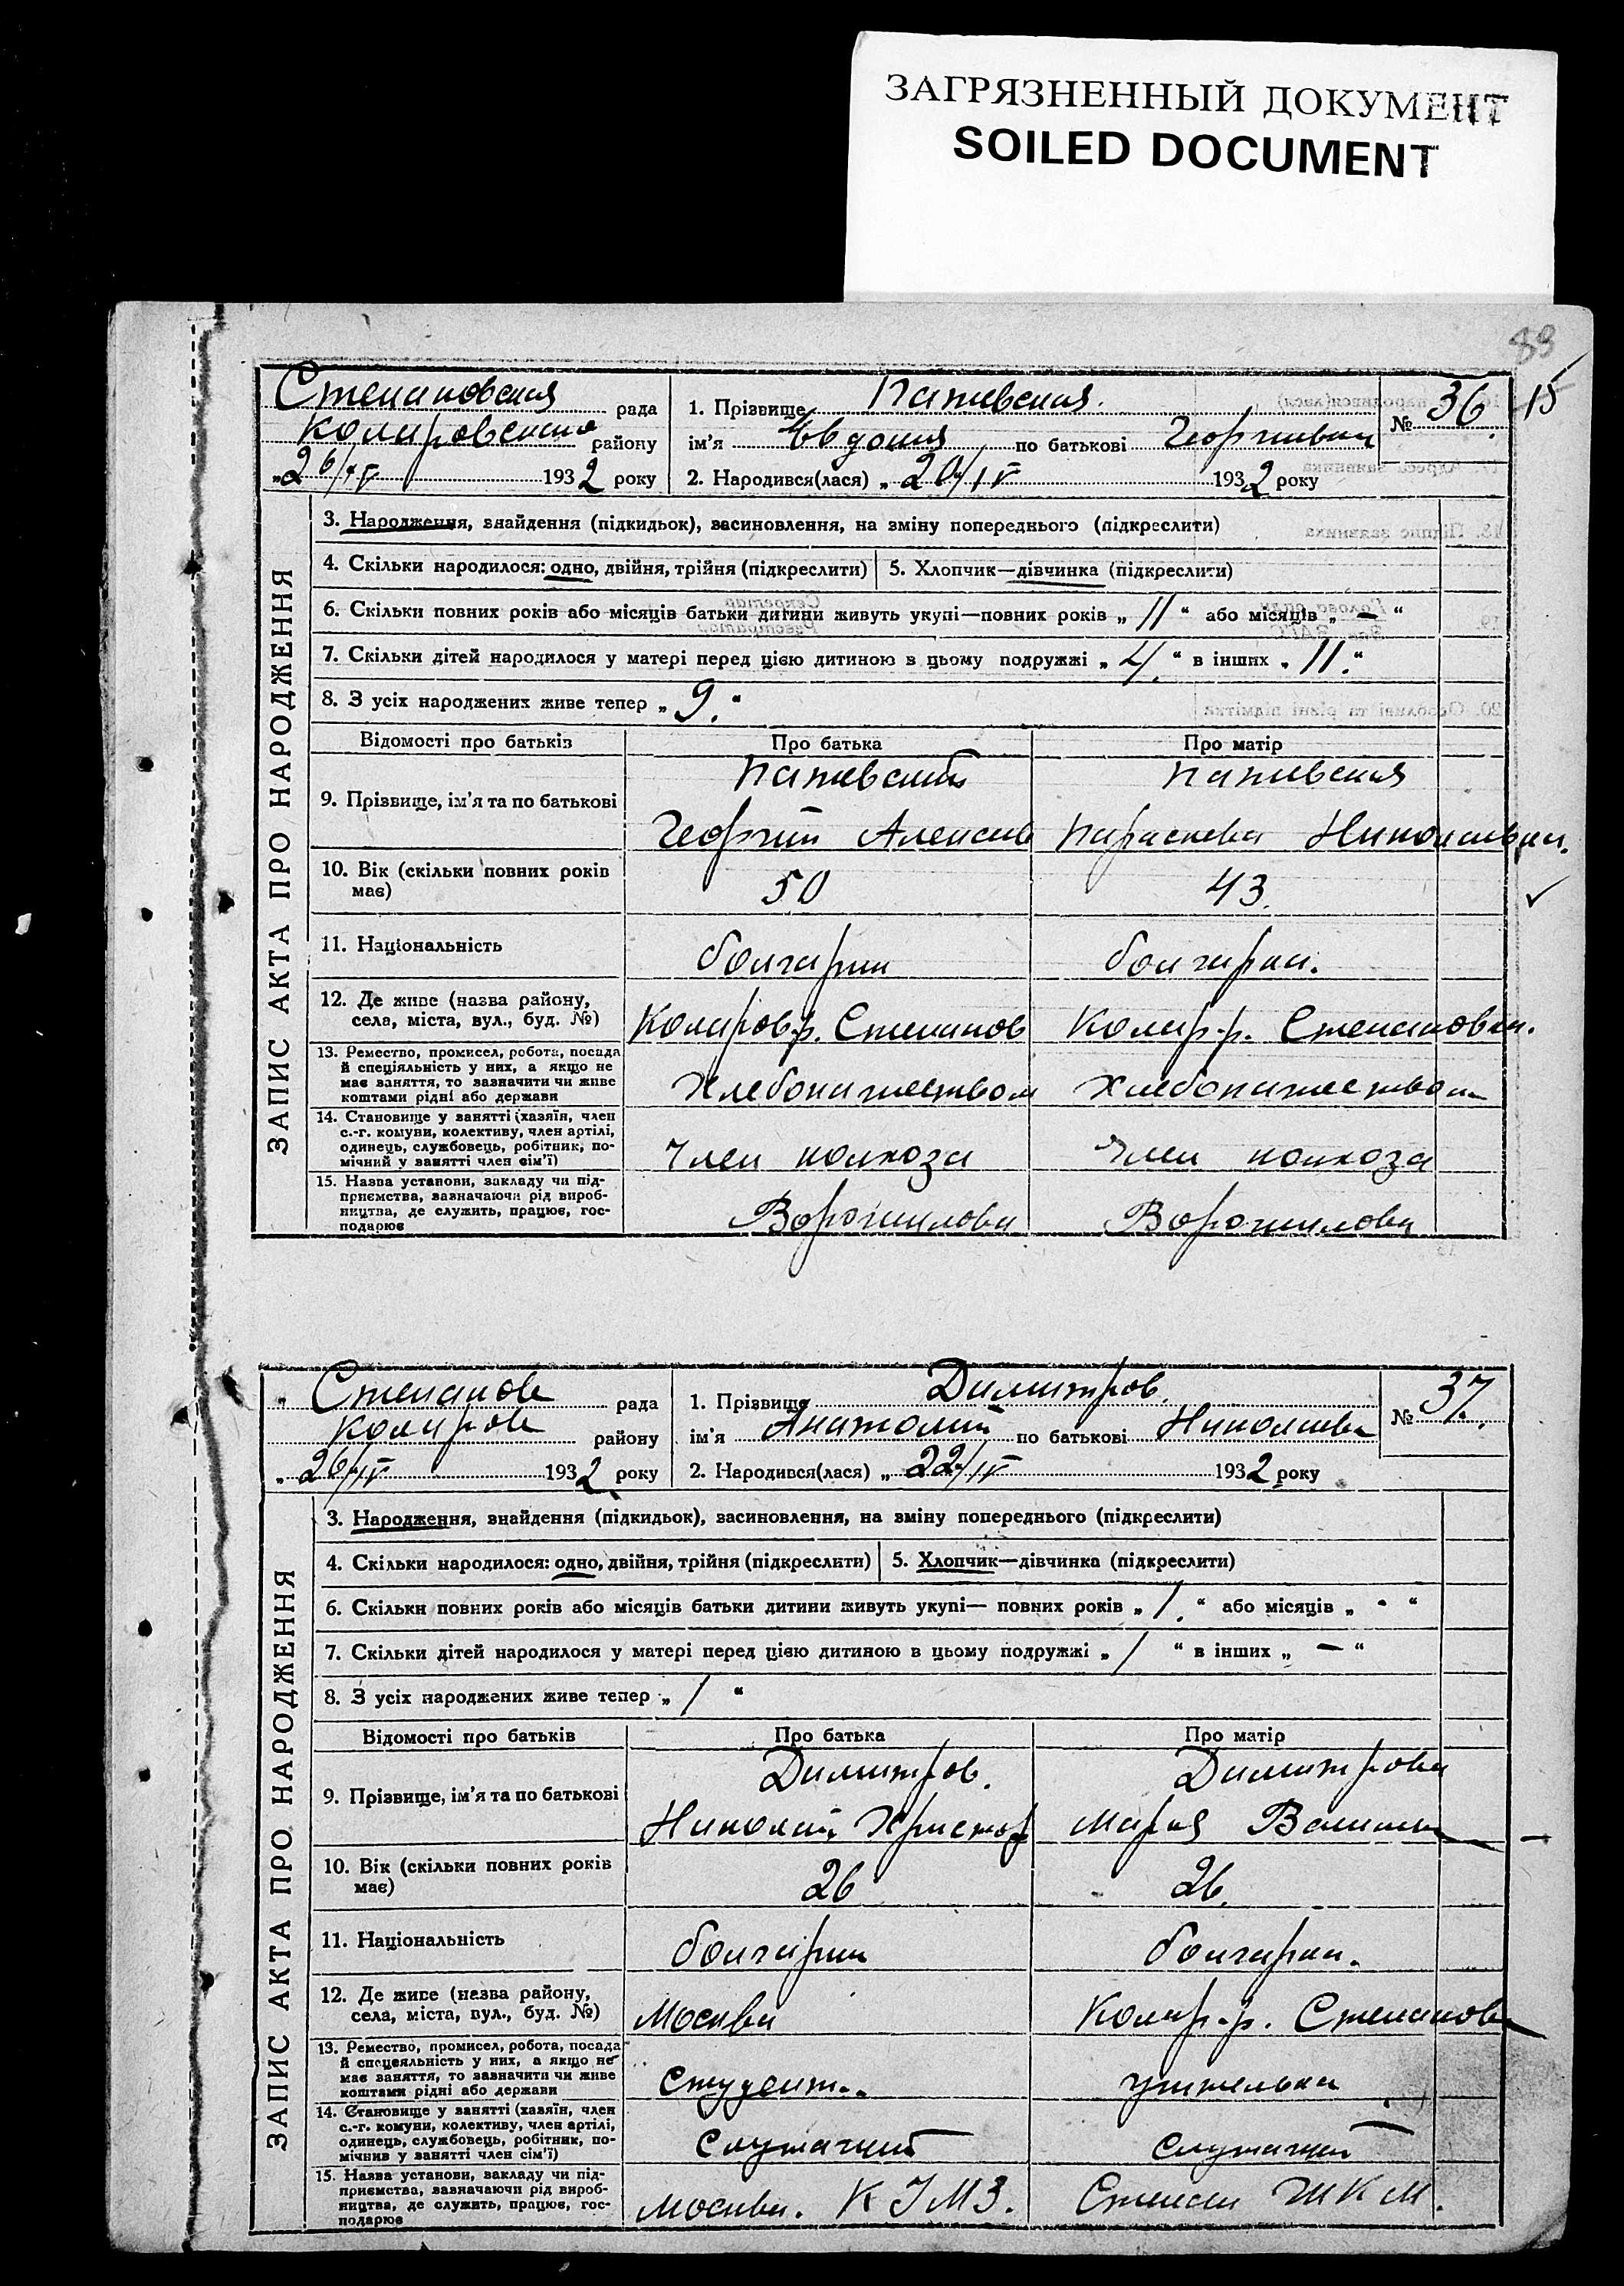 ЗАГРЯЗНЕННЫЙ ДОКУМЕНТ
SOILED DOCUMENT
83
15
ЗАПИС АКТА ПРО НАРОДЖЕННЯ
Степановская рада
Коларовського району
„26/IV 1932 року
1. Прізвище
ім'я Евдокия по батькові Георгиевна
2. Народився(лася) „20/IV 1932 року
№ 36.
3. Народження, знайдення (підкидьок), засиновлення, на зміну попереднього (підкреслити)
4. Скільки народилося: одно, двійня, трійня (підкреслити)
5. Хлопчик—дівчинка (підкреслити)
6. Скільки повних років або місяців батьки дитини живуть укупі—повних років „11“ або місяців „—“
7. Скільки дітей народилося у матері перед цією дитиною в цьому подружжі „4.“ в інших „11.“
8. З усіх народжених живе тепер „9.“
Відомості про батьків Про батька Про матір
9. Прізвище, ім'я та по батькові
Георгий Алексеев Параскева Николаевна.
10. Вік (скільки повних років має) 50 43.
11. Національність болгарин болгарка.
12. Де живе (назва району, села, міста, вул., буд. №) Коларов.р. Степанов Колар.р. Степановка.
13. Ремество, промисел, робота, посада й спеціяльність у них, а якщо не має заняття, то зазначити чи живе коштами рідні або держави Хлебопашеством Хлебопашеством
14. Становище у занятті (хазяїн, член с.-г. комуни, колективу, член артілі, одинець, службовець, робітник, помічний у занятті член сім'ї) Член колхоза Член колхоза
15. Назва установи, закладу чи підприємства, зазначаючи рід виробництва, де служить, працює, господарює Ворошилова Ворошилова
ЗАПИС АКТА ПРО НАРОДЖЕННЯ
Степанов рада
Коларов району
„26/IV 1932 року
1. Прізвище Димитров.
ім'я Анатолий по батькові Николаев
2. Народився(лася) „22/IV 1932 року
№ 37.
3. Народження, знайдення (підкидьок), засиновлення, на зміну попереднього (підкреслити)
4. Скільки народилося: одно, двійня, трійня (підкреслити)
5. Хлопчик—дівчинка (підкреслити)
6. Скільки повних років або місяців батьки дитини живуть укупі— повних років „1.“ або місяців „-“
7. Скільки дітей народилося у матері перед цією дитиною в цьому подружжі „1“ в інших „—“
8. З усіх народжених живе тепер „1“
Відомості про батьків Про батька Про матір
9. Прізвище, ім'я та по батькові Димитров. Димитрова
Николай Христор Мария
10. Вік (скільки повних років має) 26 26.
11. Національність болгарин болгарка.
12. Де живе (назва району, села, міста, вул., буд. №) Москва Колар.р. Степанов
13. Ремество, промисел, робота, посада й спеціяльність у них, а якщо не має заняття, то зазначити чи живе коштами рідні або держави Студент. учителька
14. Становище у занятті (хазяїн, член с.-г. комуни, колективу, член артілі, одинець, службовець, робітник, помічнив у занятті член сім'ї) Служащий Служащий
15. Назва установи, закладу чи підприємства, зазначаючи рід виробництва, де служить, працює, господарює Москва. ШКМ.